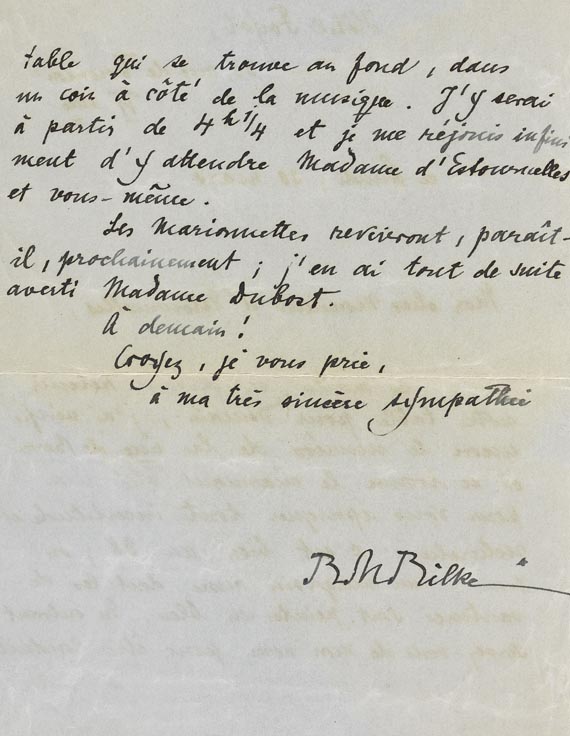 table qui se trouve au fond, dans
un coin à côté de la musique. J'y serai
à partir de 4 h 1/4 et je me réjouis infini
ment d'y attendre Madame d'Estournelles
et vous-même.
Les Marionnettes reviviront, paraît-
il, prochainement ; j'en ai tout de suite
averti Madame Dubost.
À demain !
Croyez, je vous prie,
à ma très sincère sympathie
RMRilke